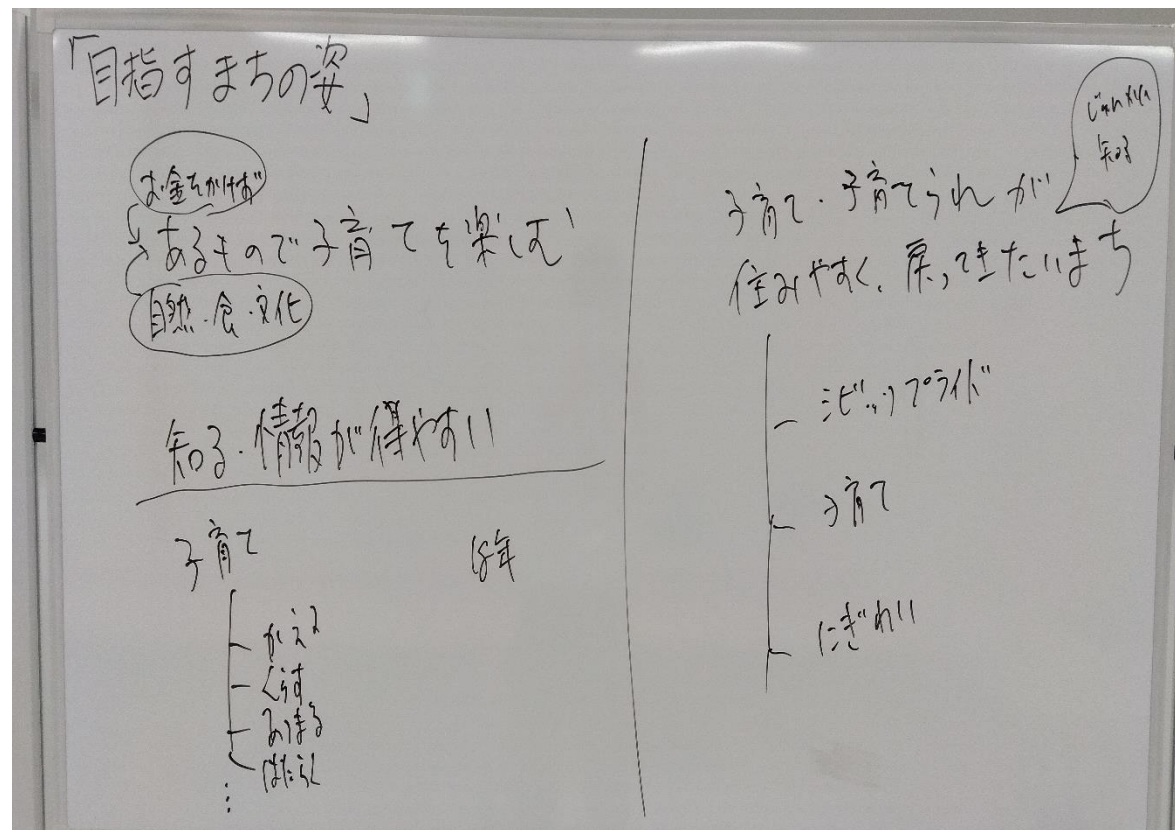 「目指すまちの姿」
お金をかけず
あるもので子育てを楽しむ
自然・食・文化
知る・情報が得やすい
子育て
18年
かえる
くらす
あつまる
はたらく
⋮
知る
子育て・子育てられが
住みやすく、戻ってきたいまち
シビックプライド
子育て
にぎわい